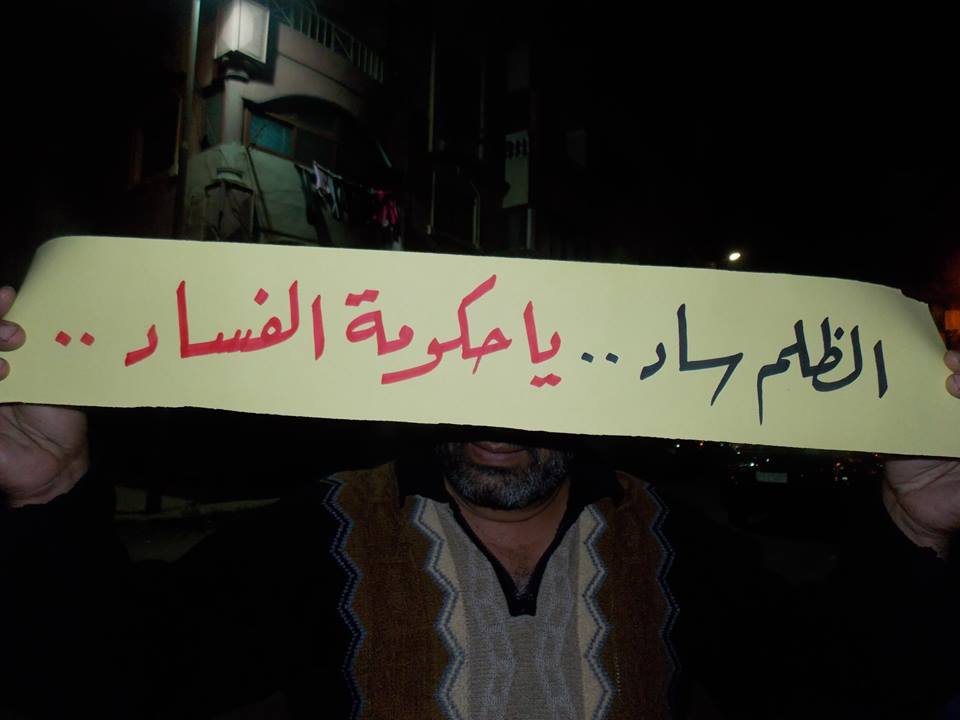 الظلم ساد .. يا حكومة الفساد ..